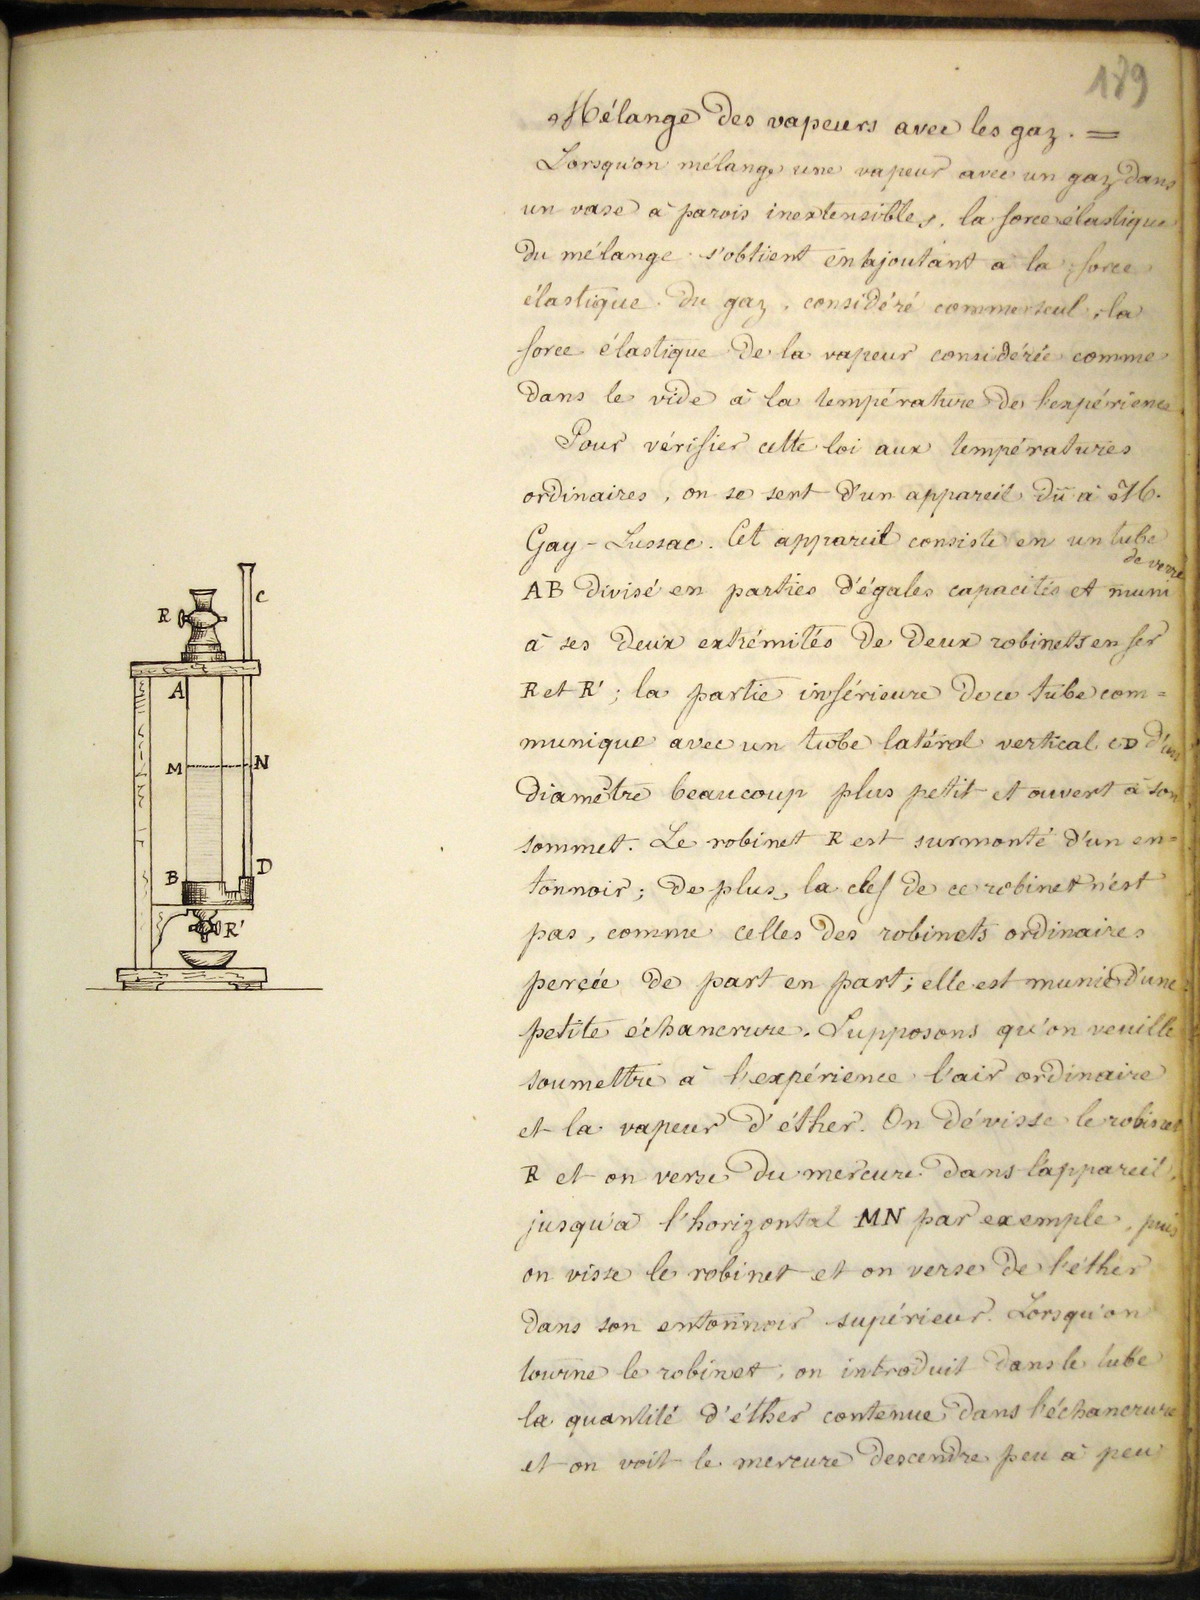 189
Mélange des vapeurs avec les gaz. =
Lorsqu'on mélange une vapeur avec un gaz dans
un vase à parois inextensibles, la force élastique
du mélange s'obtient en ajoutant à la force
élastique du gaz, considéré comme seul, la
force élastique de la vapeur considérée comme
dans le vide à la température de l'expérience
Pour vérifier cette loi aux températures
ordinaires, on se sert d'un appareil dû à M.
Gay-Lussac. Cet appareil consiste en un tube
de verre
AB divisé en parties d'égales capacités et muni
à ses deux extrémités de deux robinets en fer
R et R'; la partie inférieure de ce tube com=
munique avec un tube latéral vertical CD d'un
diamètre beaucoup plus petit et ouvert à son
sommet. Le robinet R est surmonté d'un en=
tonnoir; de plus, la clef de ce robinet n'est
pas, comme celles des robinets ordinaires
percée de part en part; elle est munie d'une
petite échancrure. Supposons qu'on veuille
soumettre à l'expérience l'air ordinaire
et la vapeur d'éther. On dévisse le robinet
R et on verse du mercure dans l'appareil,
jusqu'à l'horizontal MN par exemple, puis
on visse le robinet et on verse de l'éther
dans son entonnoir supérieur. Lorsqu'on
tourne le robinet, on introduit dans le tube
la quantité d'éther contenue dans l'échancrure
et on voit le mercure descendre peu à peu
R
C
A
M
N
B
D
R'